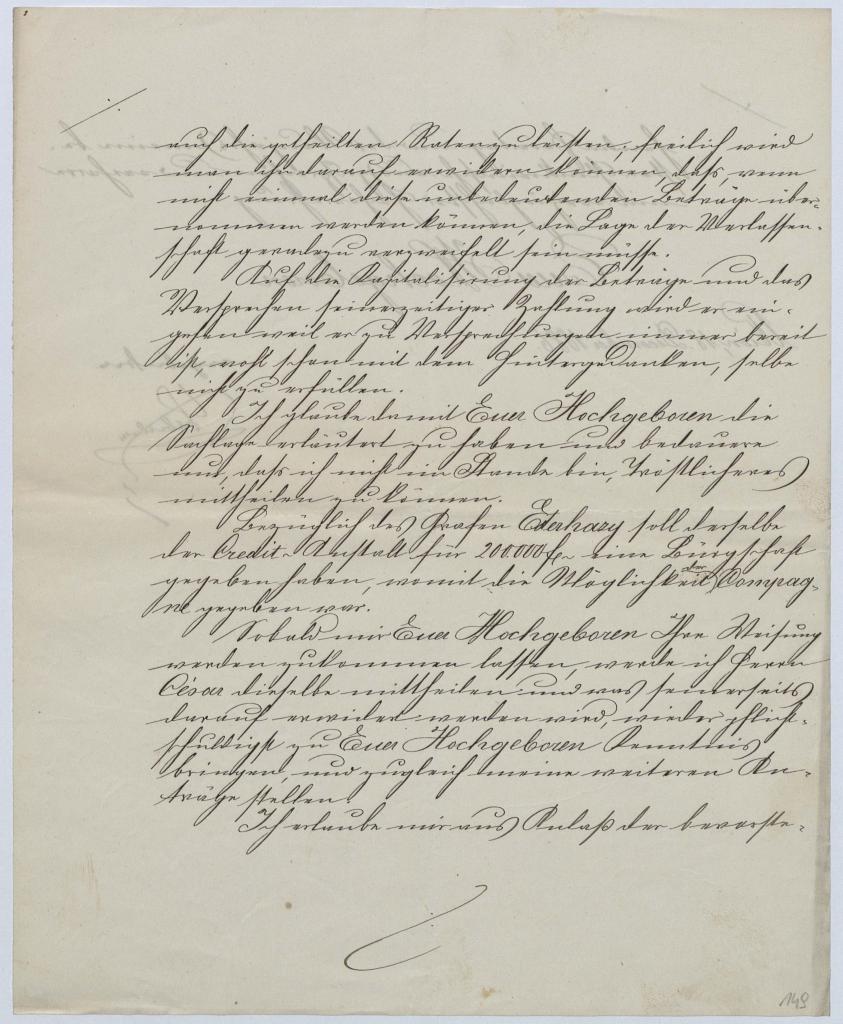 auch die getheilten Raten zu leisten; freilich wird
man ihm darauf erwidern können, dass, wenn
nicht einmal diese unbedeutenden Beträge über-
nommen werden können, die Lage der Verlassen-
schaft geradezu verzweifelt sein müsse.
Auf die Kapitalisirung der Beträge und das
Versprechen seinerzeitiger Zahlung wird er ein-
gehen weil er zu Versprechungen immer bereit
ist, wohl schon mit dem Hintergedanken, selbe
nicht zu erfüllen.
Ich glaube damit Euer Hochgeboren die
Sachlage erläutert zu haben und bedauere
nur, dass ich nicht im Stande bin, Tröstlicheres
mittheilen zu können.
Bezüglich des Grafen Esterhazy soll derselbe
der Credit-Anstalt für 200.000 f eine Bürgschaft
gegeben haben, womit die Möglichkeit der Compag-
ne gegeben war.
Sobald mir Euer Hochgeboren Ihre Weisung
werden zukommen lassen, werde ich Herrn
César dieselbe mittheilen und was seinerseits
darauf erwidert werden wird, wieder pflicht-
schuldigst zu Euer Hochgeboren Kenntnis
bringen, und zugleich meine weiteren An-
träge stellen.
Ich erlaube mir aus Anlaß der bevorste-
149